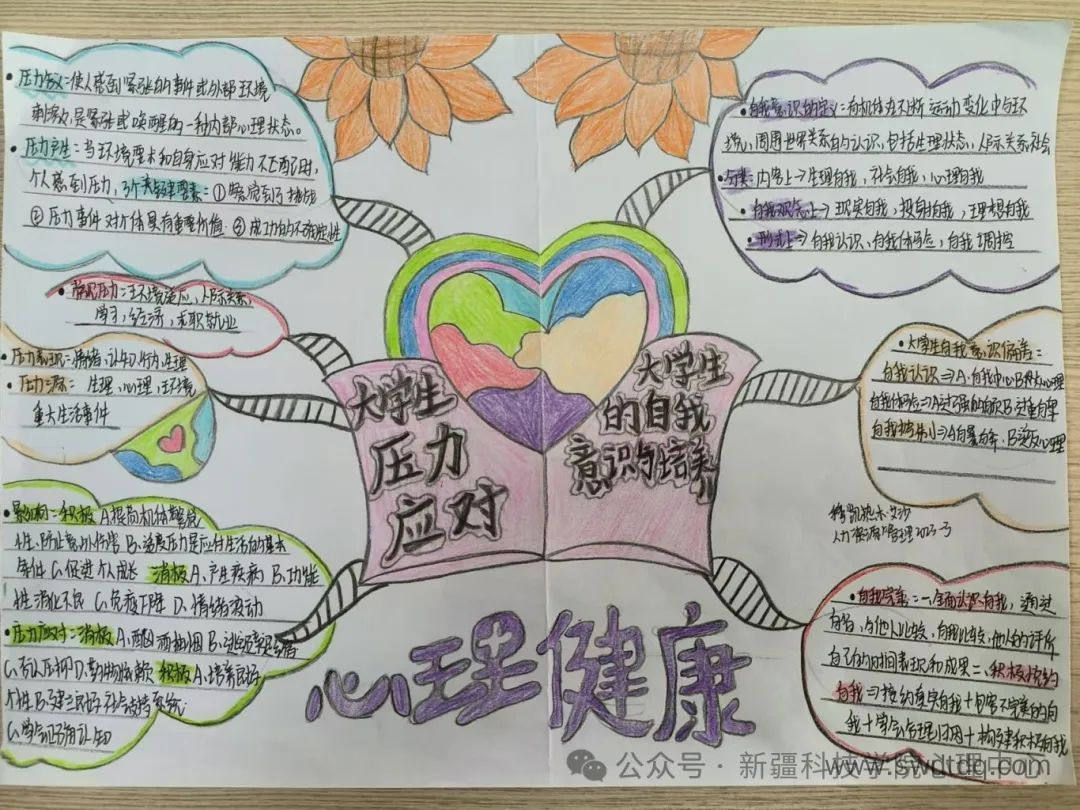 压力定义:使人感到紧张的事件或外部环境
刺激,是紧张或唤醒的一种内部心理状态。
压力产生:当环境要求和自身应对能力不匹配时,
个人感到压力,3个关键要素:①
②压力事件对个体具有重要价值 ③成功的不确定性
常见压力:环境适应、人际关系、
学习、经济、求职就业
压力表现:情绪、认知、行为、生理
压力源:生理、心理、环境
重大生活事件
影响:积极A.提高机体警觉
性、防止意外伤害 B.适度压力是应付生活的基本
条件 C.促进个人成长 消极A.产生疾病B.功能
性消化不良 C.免疫下降 D.情绪波动
压力应对:消极A.酗酒抽烟 B.
C. D. 积极A.培养良好
个性B.建立良好社会支持系统
C.学会
大学生
压力
应对
大学生
的自我
意识与培养
心理健康
自我意识的定义:有机体在不断运动变化中与环
境、周围世界关系的认识,包括生理状态、人际关系、社会
分类:内容上→生理自我,社会自我,心理自我
自我观念上→现实自我,投射自我,理想自我
形式上→自我认识,自我体验,自我调控
大学生自我意识偏差:
自我认识⇒A.自我中心B.从众心理
自我体验⇒A.过强的自尊B.过重自卑
B.逆反心理
人力资源管理2023-3
自我完善:一.全面认识自我,通过
内省,与他人比较,自我比较,他人的评价
自己的时间表现和成果 二.积极悦纳
自我⇒接纳真实自我+
我+学会合理归因+构建积极自我
公众号·新疆科技学院心理中心
www.swdtdq.com